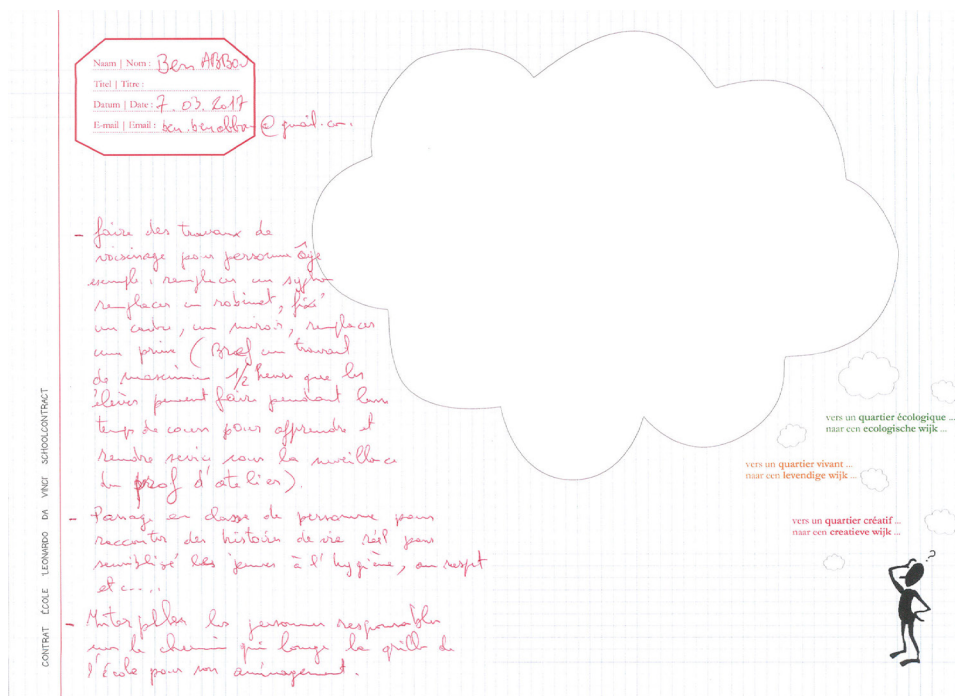 Naam | Nom : Ben ABBou
Titel | Titre :
Datum | Date : 7.03.2017
E-mail | Email : @gmail.com.
- faire des travaux de
voisinage pour personne âge
exemple : remplacer un sypho
remplacer un robinet, fixé
un cadre, un miroir, remplacer
une prise (Bref un travail
de maximum 1/2 heure que les
élèves peuvent faire pendant leur
temps de cours pour apprendre et
rendre service sous la surveillance
du prof d'atelier).
- Passage en classe de personne pour
raconter des histoire de vie réel pour
sensiblisé les jeunes à l'hygiène, au respt
etc....
- Interpeller les personnes responsables
sur le chemin qui longe la grille de
l'École pour son aménagement.
CONTRAT ÉCOLE LEONARDO DA VINCI SCHOOLCONTRACT
vers un quartier écologique ...
naar een ecologische wijk ...
vers un quartier vivant ...
naar een levendige wijk ...
vers un quartier créatif ...
naar een creatieve wijk ...
?